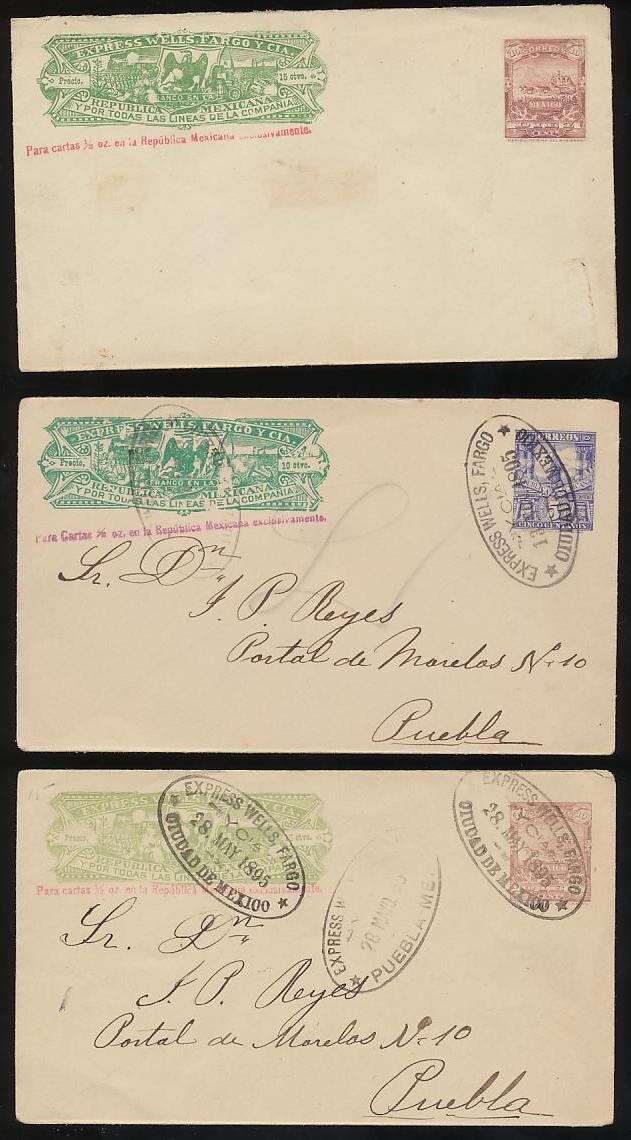 EXPRESS WELLS, FARGO Y CIA.
Precio. 15 ctvo.
REPUBLICA MEXICANA
Y POR TODAS LAS LINEAS DE LA COMPAÑIA
Para cartas ½ oz. en la República Mexicana exclusivamente.
10 CORREOS 10
MEXICO
EXPRESS WELLS, FARGO Y CIA.
Precio. 10 ctvo.
FRANCO EN LA
REPUBLICA MEXICANA
Y POR TODAS LAS LINEAS DE LA COMPAÑIA
Para Cartas ½ oz. en la República Mexicana exclusivamente.
CORREOS
CINCO CENTAVOS
★ EXPRESS WELLS, FARGO ★
Y CIA
Sr. Dn
J. P. Reyes
Portal de Morelos No 10
Puebla
EXPRESS WELLS, FARGO Y CIA.
Precio.
REPUBLICA
Y POR TODAS LAS LINEAS DE LA COMPAÑIA
Para cartas ½ oz. en la República Mexicana exclusivamente.
★ EXPRESS WELLS, FARGO ★
Y CIA
28. MAY. 1895
CIUDAD DE MEXICO
EXPRESS WELLS, FARGO
Y CIA
28. MAY 1895
CIUDAD DE MEXICO ★
EXPRESS W
28 MAYO
★ PUEBLA, ME.
Sr. Dn
J. P. Reyes
Portal de Morelos No 10
Puebla